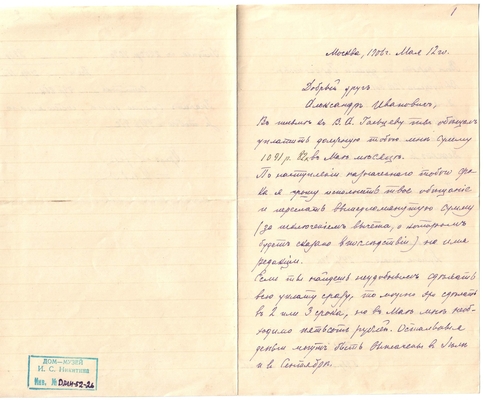 Москва, 1906 г. Мая 12 го.
Добрый другъ
Александръ Ивановичъ,
Въ письмѣ къ В. А. Гольцеву ты обѣщалъ
уплатить должную тобою мнѣ сумму
1091 р. въ Маѣ мѣсяцѣ.
По наступленіи назначеннаго тобой сро-
ка я прошу исполнить твое обѣщаніе
и переслать вышеупомянутую сумму
(за исключеніемъ вычета, о которомъ
будетъ сказано впослѣдствіи) на имя
редакціи.
Если ты найдешь неудобнымъ сдѣлать
всю уплату сразу, то можно ее сдѣлать
въ 2 или 3 срока, но въ Маѣ мнѣ необ-
ходимо пятьсотъ рублей. Остальныя
деньги могутъ быть въ Іюлѣ
и въ Сентябрѣ.
ДОМ-МУЗЕЙ
И. С. Никитина
Инв. №